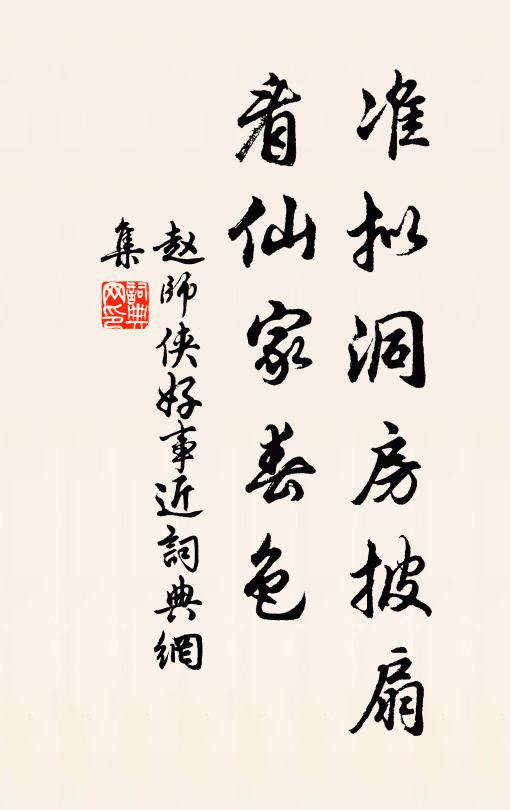 准拟洞房披扇
看仙家春色
赵師侠好事近詞典網
集
詞典
网印